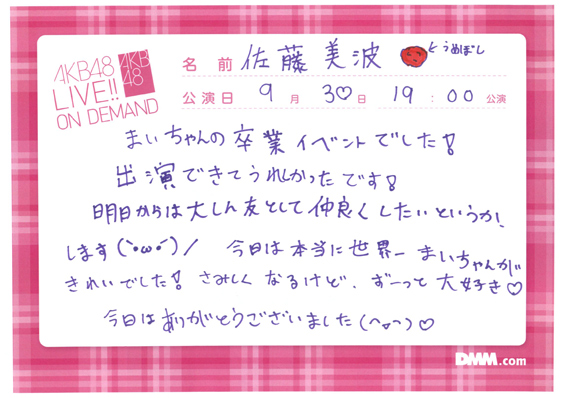 AKB48
LIVE!!
ON DEMAND
AKB
48
名前 佐藤美波 ←うめぼし
公演日 9月30日 19:00公演
まいちゃんの卒業イベントでした!
出演できてうれしかったです!
明日からは大しん友として仲良くしたいというか!
します(`・ω・´)ノ 今日は本当に世界一 まいちゃんが
きれいでした! さみしく なるけど、ずーっと大好き♡
今日はありがとうございました(^o^)♡
DMM.com